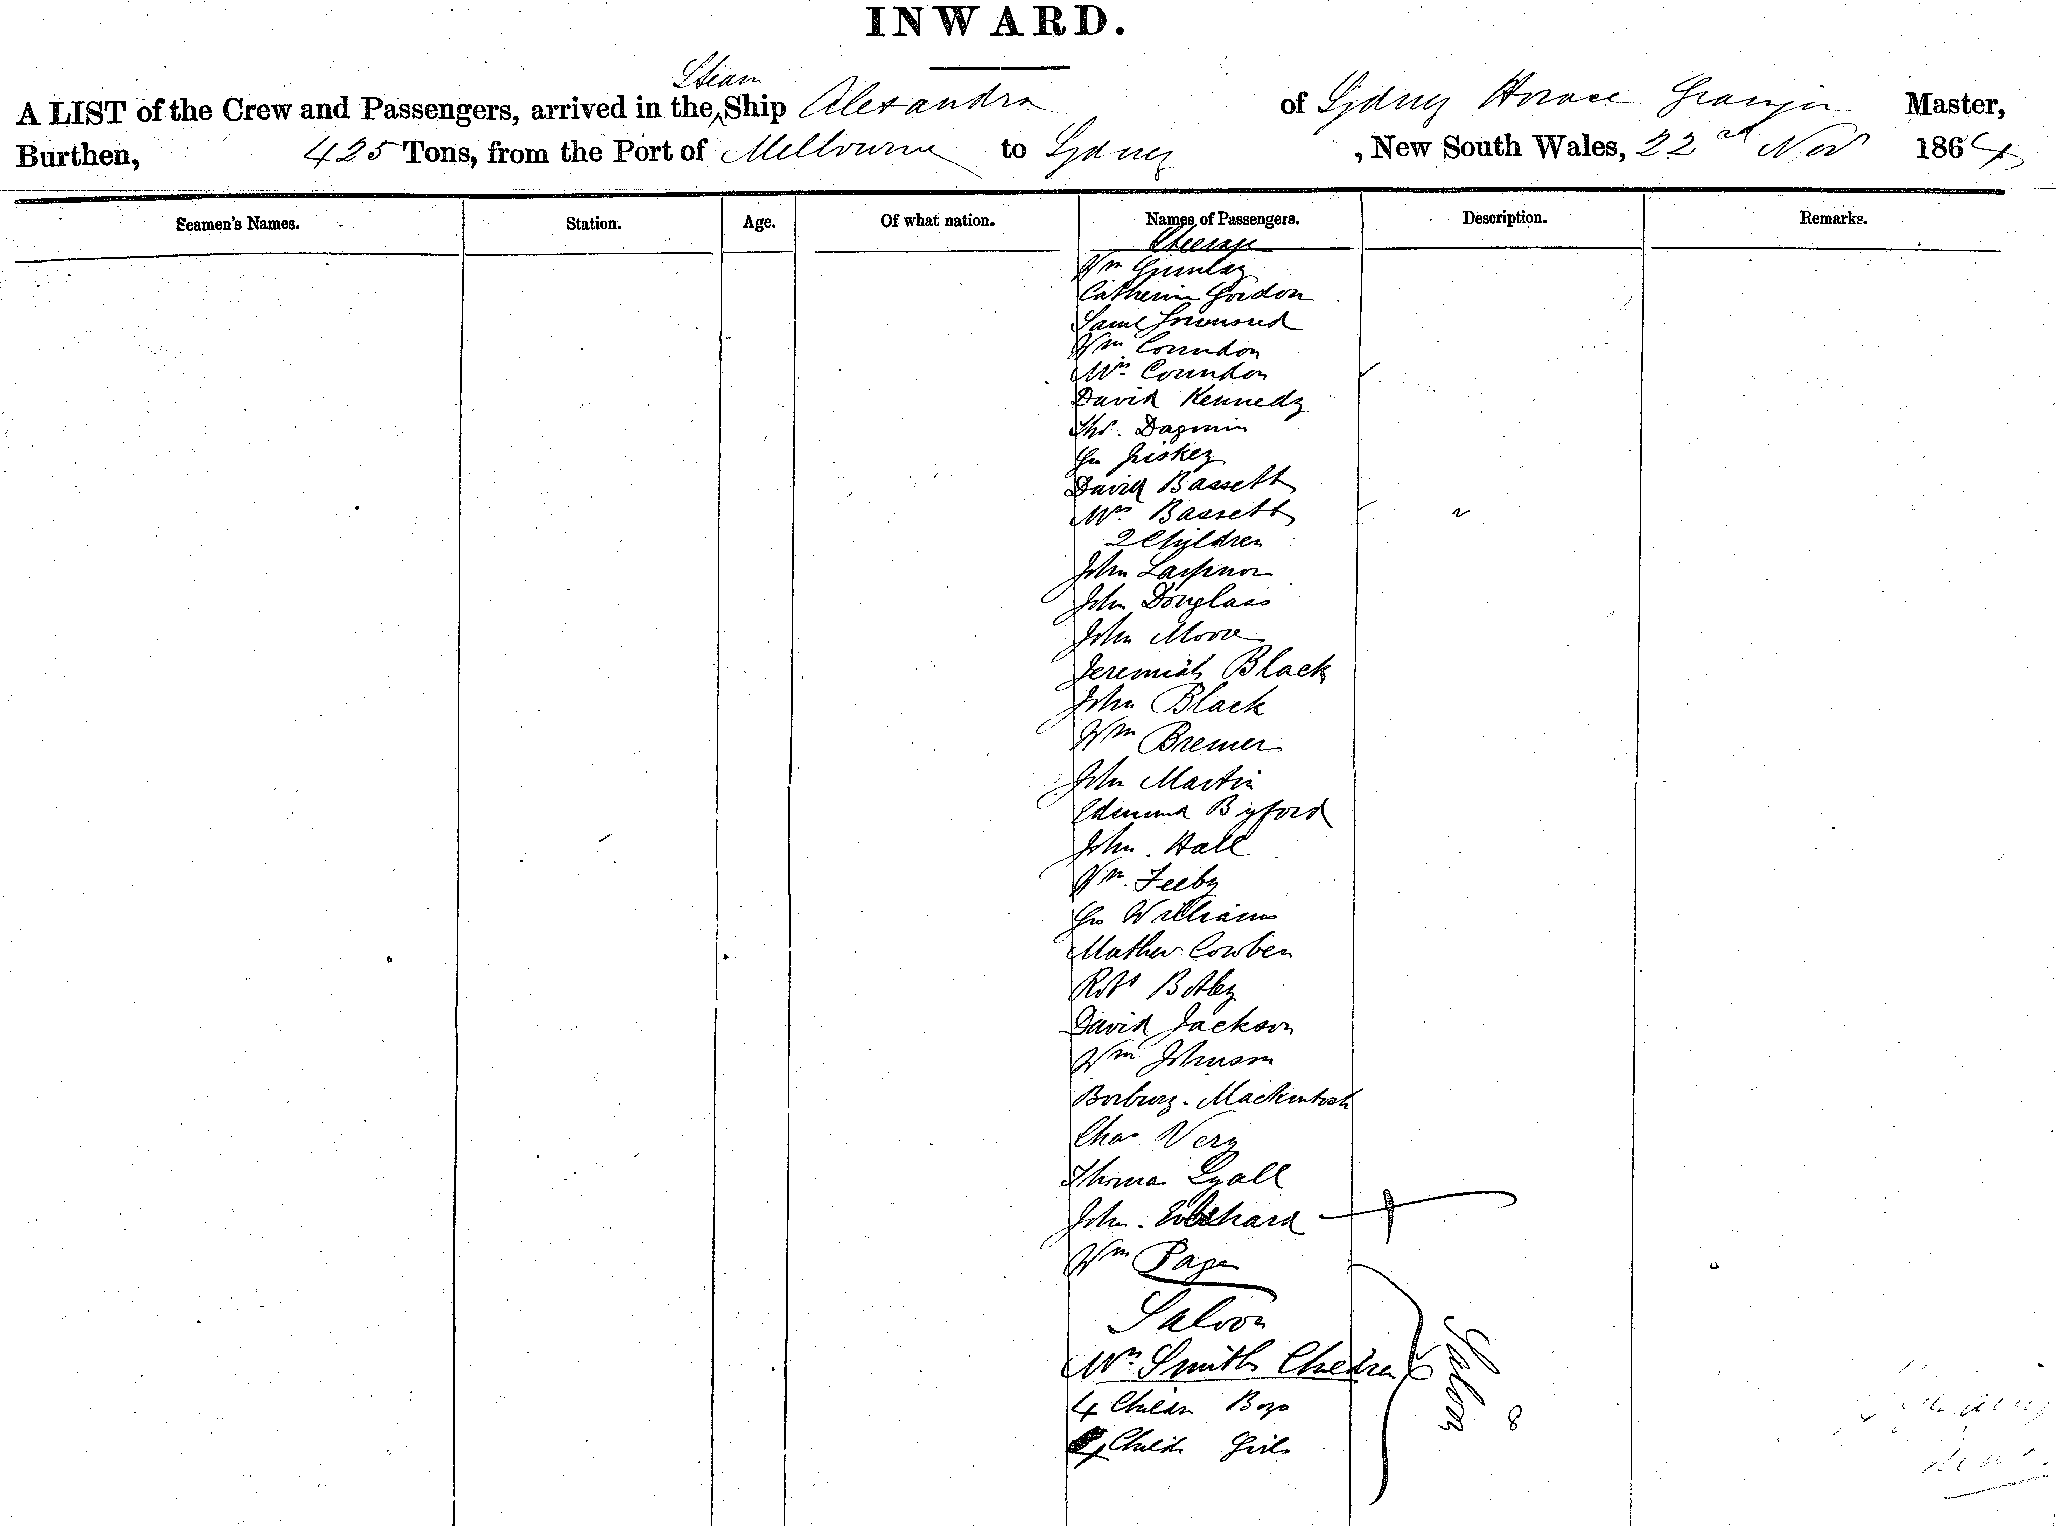 INWARD.
Steam
A LIST of the Crew and Passengers, arrived in the ^ Ship Alexandra of Sydney Horace Grainger Master,
Burthen, 425 Tons, from the Port of Melbourne to Sydney , New South Wales, 22nd Nov 1864
Seamen's Names. Station. Age. Of what nation. Names of Passengers. Description. Remarks.
Steerage
Wm
Catherine Gordon
Saml
Wm Corundon
Mrs. Corundon
David Kennedy
Ths.
Geo
David Bassett
Mrs. Bassett
2 Children
John
John Douglass
John Moore
Jeremiah Black
John Black
Wm Bremer
John Martin
Edmund Byford
John Hall
Wm. Feeby
Geo Williams
Mathew Cowben
Robt Botley
David Jackson
Wm Johnson
Mackintosh
Chas Very
Thomas Lyall
John
Wm Page
Saloon
Mrs. Smith Children
4 Childn Boys
4 Childn Girls
Saloon
8